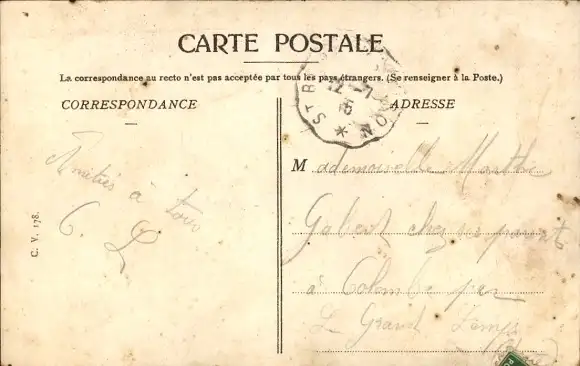 CARTE POSTALE
La correspondance au recto n'est pas acceptée par tous les pays étrangers. (Se renseigner à la Poste.)
CORRESPONDANCE
ADRESSE
Amitiés à tous
C. L
C. V. 178.
Mademoiselle Marthe
Gabert chez ses parents
à Colombe par
Le Grand Lemps
(Isère)
12 - 7
15